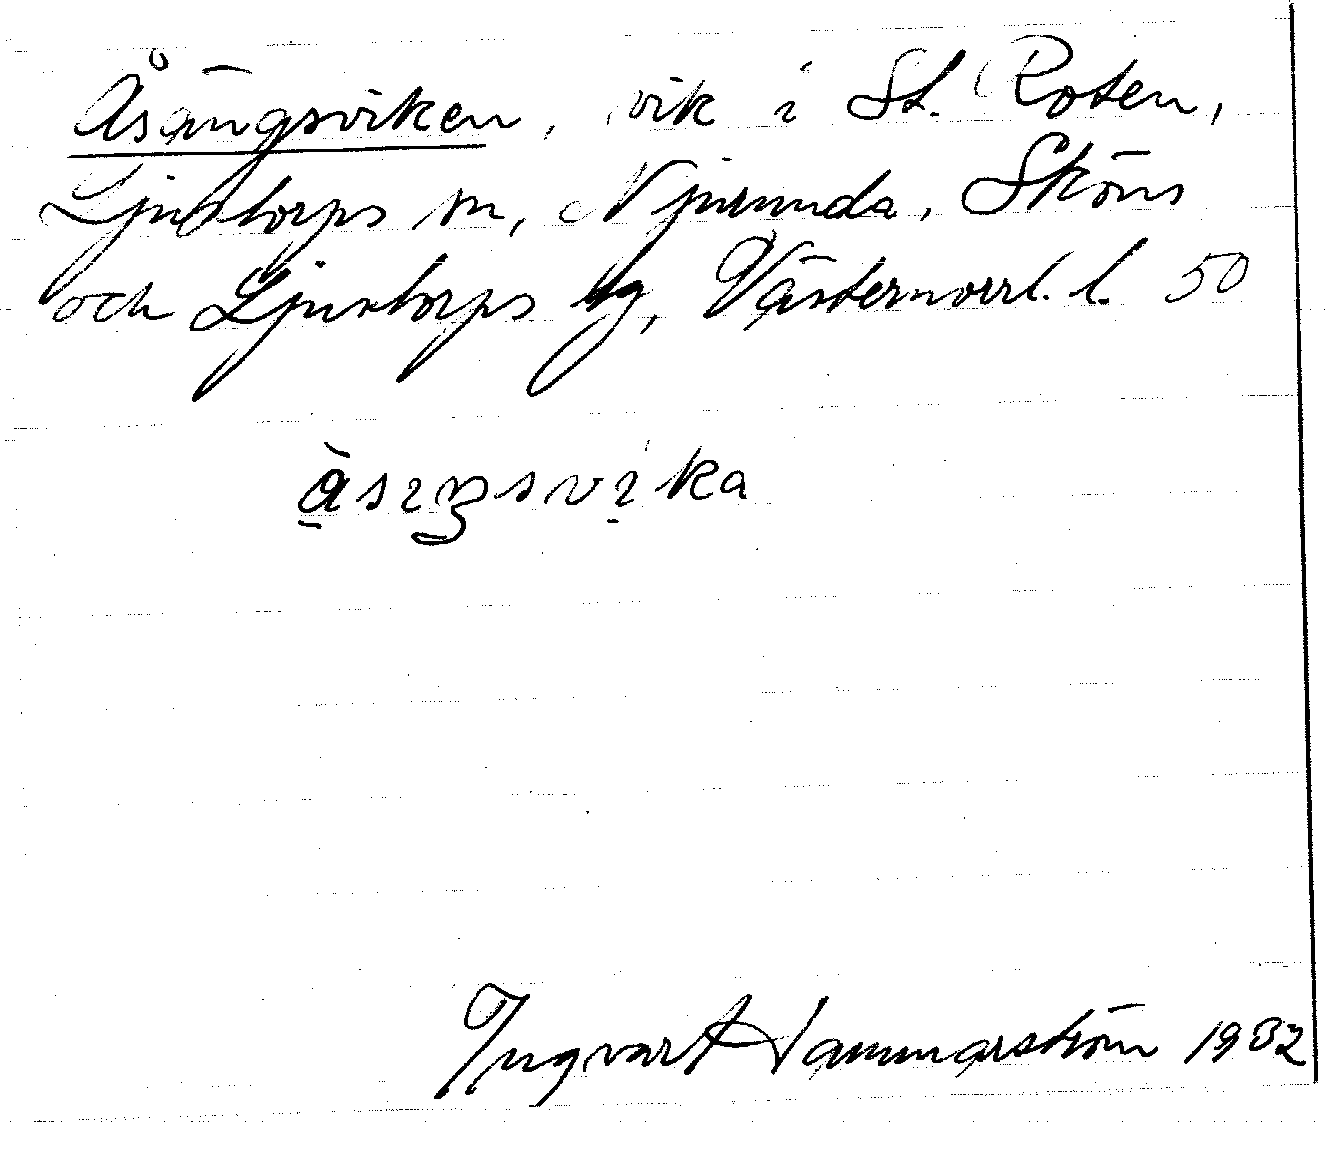 Åsängsviken, vik i St. Roten,
Ljustorps sn, Njurunda, Sköns
och Ljustorps tg, Västernorrl. l. 50
Ingvar Hammarström 1932